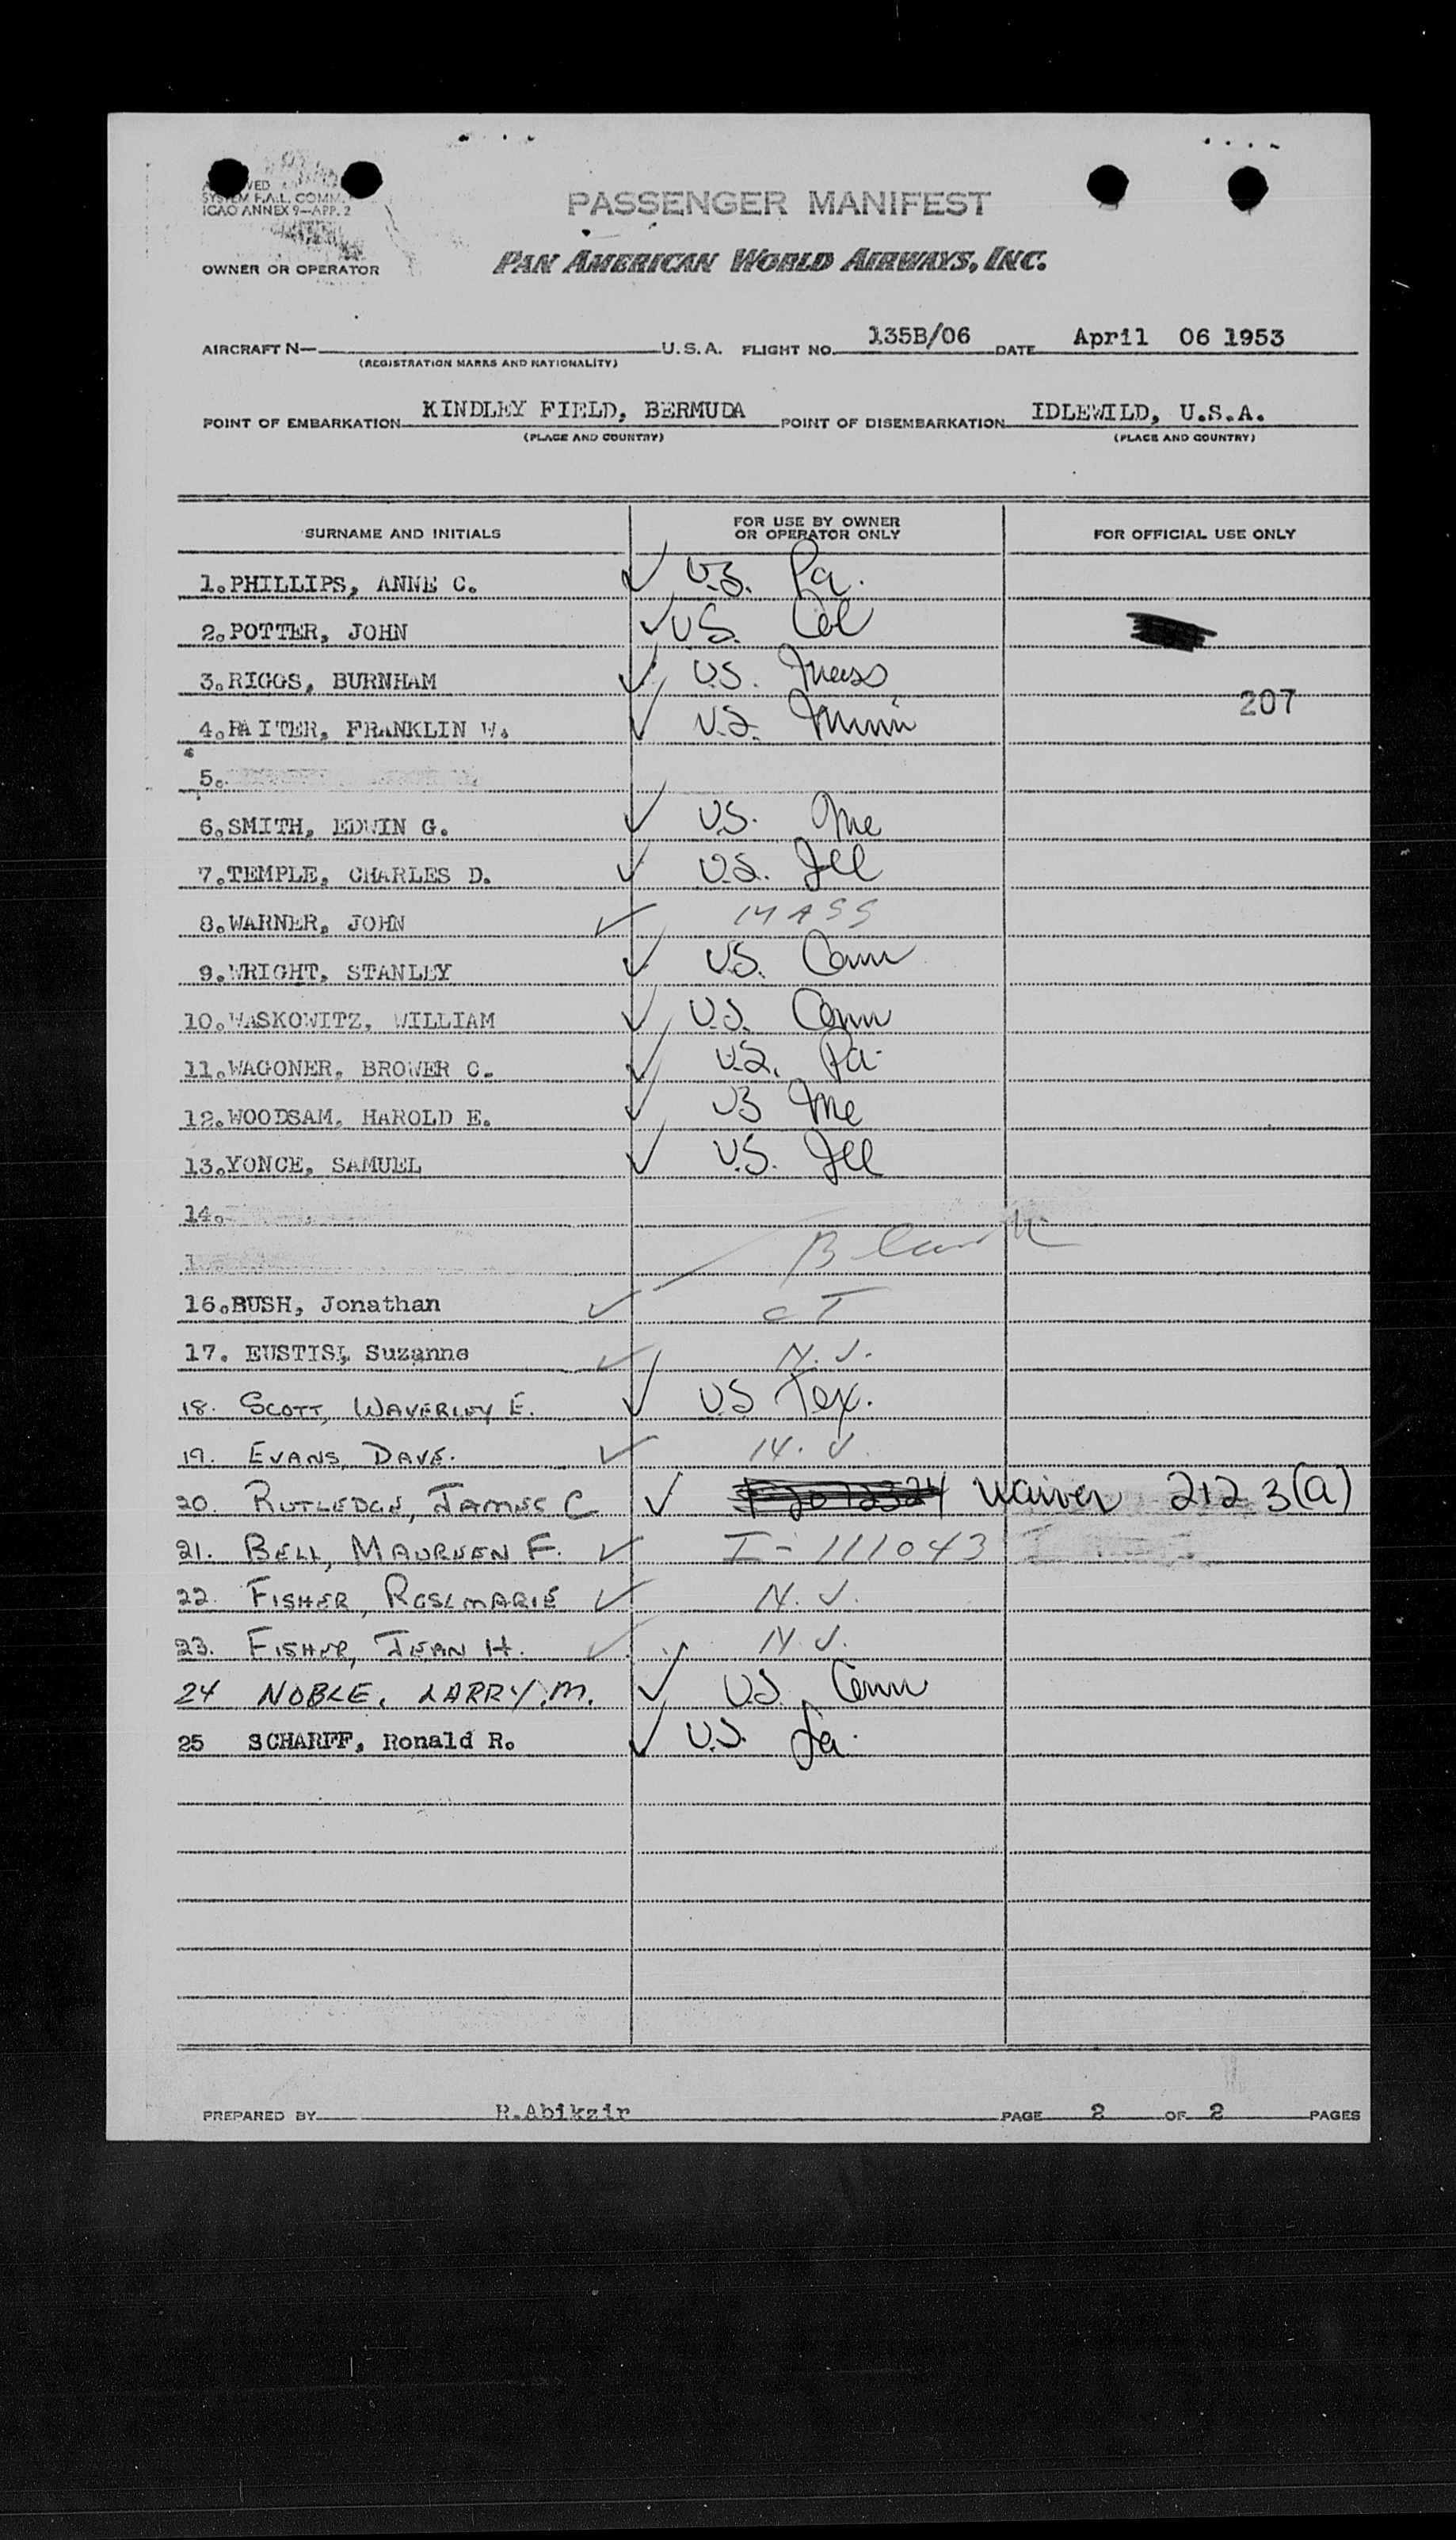 SYSTEM F.A.L. COMM.
ICAO ANNEX 9—APP. 2
PASSENGER MANIFEST
OWNER OR OPERATOR PAN AMERICAN WORLD AIRWAYS, INC.
AIRCRAFT N— U.S.A. FLIGHT NO. 135B/06 DATE April 06 1953
(REGISTRATION MARKS AND NATIONALITY)
POINT OF EMBARKATION KINDLEY FIELD, BERMUDA POINT OF DISEMBARKATION IDLEWILD, U.S.A.
(PLACE AND COUNTRY) (PLACE AND COUNTRY)
SURNAME AND INITIALS FOR USE BY OWNER OR OPERATOR ONLY FOR OFFICIAL USE ONLY
1. PHILLIPS, ANNE C. ✓ U.S. Pa.
2. POTTER, JOHN ✓ U.S. Cal
3. RIGGS, BURNHAM ✓ U.S. Mass
207
4. RAITER, FRANKLIN W. ✓ U.S. Minn
5.
6. SMITH, EDWIN G. ✓ U.S. Me
7. TEMPLE, CHARLES D. ✓ U.S. Ill
8. WARNER, JOHN ✓ MASS
9. WRIGHT, STANLEY ✓ U.S. Conn
10. WASKOWITZ, WILLIAM ✓ U.S. Conn
11. WAGONER, BROWER C. ✓ U.S. Pa.
12. WOODSAM, HAROLD E. ✓ US Me
13. YONCE, SAMUEL ✓ U.S. Ill
14.
Blank
16. BUSH, Jonathan ✓ CT
17. EUSTIS, Suzanne ✓ N.J.
18. SCOTT, WAVERLEY E. ✓ U.S Tex.
19. EVANS, DAVE. ✓ N.J.
20. RUTLEDGE, JAMES C ✓ Waiver 212 3(a)
21. BELL, MAUREEN F. ✓ I-111043
22. FISHER, ROSEMARIE ✓ N.J.
23. FISHER, JEAN H. ✓ N.J.
24 NOBLE, LARRY.M. ✓ U.S. Conn
25 SCHARFF, Ronald R. ✓ U.S. La.
PREPARED BY R.Abikzir PAGE 2 OF 2 PAGES